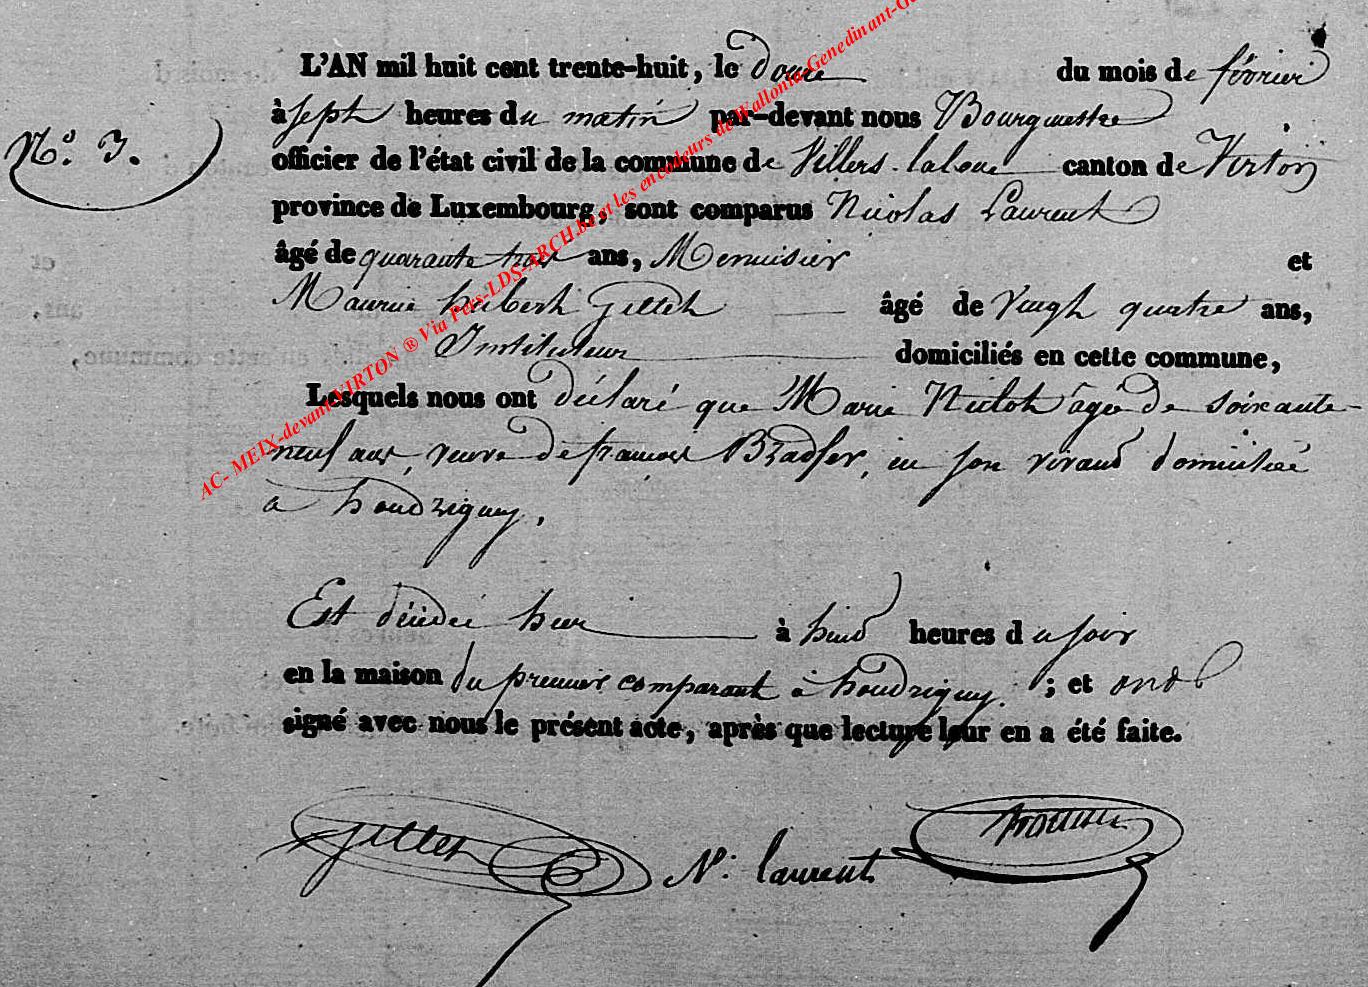 L'AN mil huit cent trente-huit, le douze du mois de février
à sept heures du matin par-devant nous Bourgmestre
N° 3.
officier de l'état civil de la commune de Villers-laloue canton de Virton
province de Luxembourg, sont comparus Nicolas Laurent
âgé de quarante trois ans, Menuisier et
Maurice hubert Gillet âgé de Vingt quatre ans,
Instituteur domiciliés en cette commune,
Lesquels nous ont déclaré que Marie âgée de soixante-
neuf ans, veuve de françois Bradfer, en son vivant domiciliée
a houdrigny,
Est décédée hier à huit heures du soir
en la maison du premier comparant à houdrigny. ; et ont
signé avec nous le présent acte, après que lecture leur en a été faite.
Gillet N. laurent
AC- MEIX-devant-VIRTON ® Via Pers-LDS-ARCH.be et les encodeurs de Wallonie-Genedinant-G